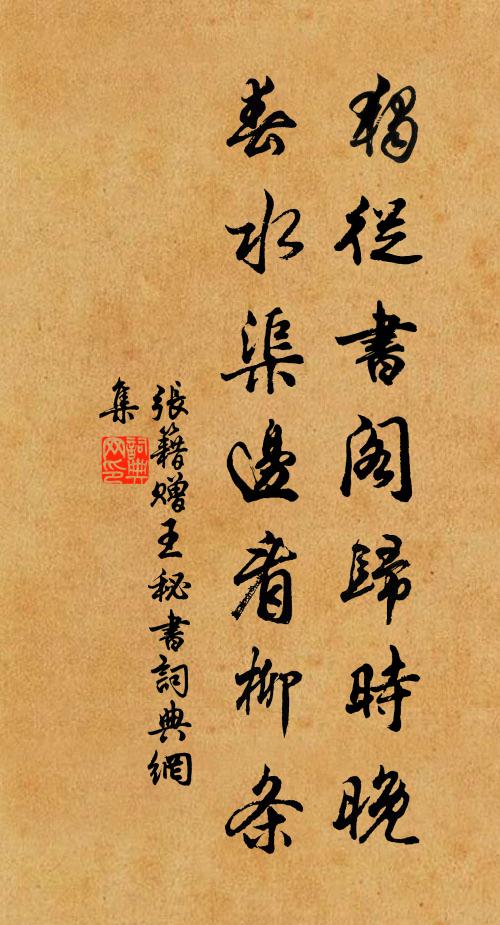 獨從書阁歸時晚
春水渠邊看柳条
張籍贈王秘書詞典網
集
詞典网印